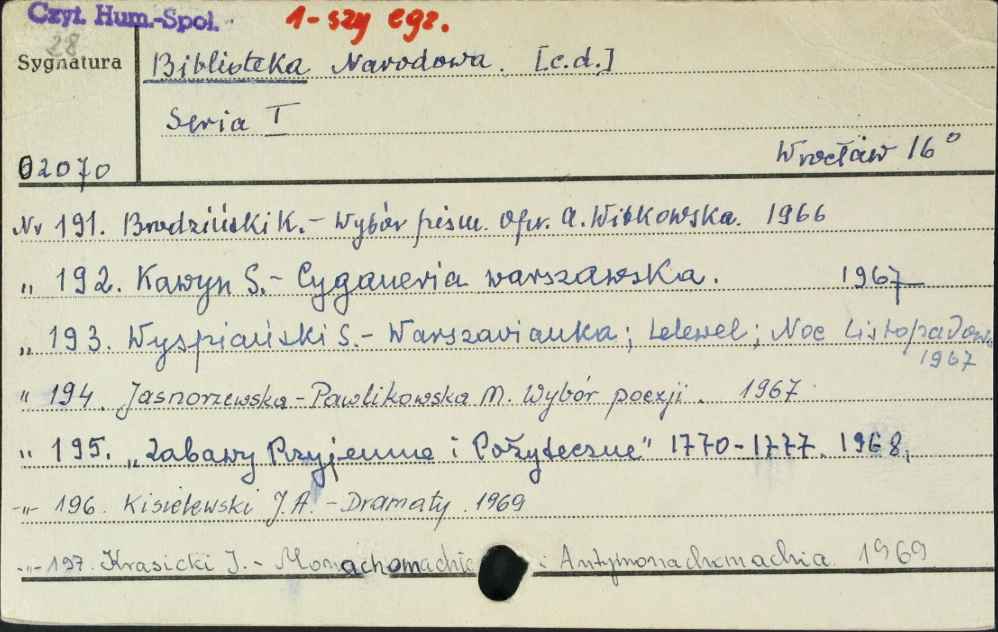 Czyt. Hum.-Społ.
1-szy egz.
28
Sygnatura
Biblioteka Narodowa. [c.d.]
Seria I
02070
Wrocław 16°
Nr 191. Brodziński K. - Wybór pism. Opr. A. Witkowska. 1966
„ 192. Kawyn S. - Cyganeria warszawska. 1967
„ 193. Wyspiański S. - Warszawianka; Lelewel; Noc Listopadowa
1967
„ 194. Jasnorzewska-Pawlikowska M. Wybór poezji. 1967
„ 195. „Zabawy Przyjemne i Pożyteczne" 1770-1777. 1968.
-„- 196. Kisielewski J.A. - Dramaty. 1969
-„- 197. Krasicki I. - Monachomachia i Antymonachomachia. 1969